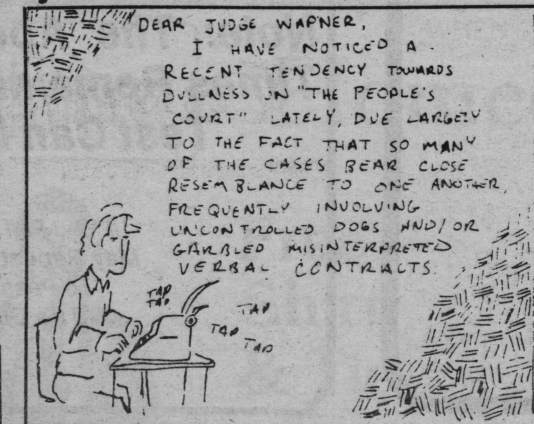 DEAR JUDGE WAPNER,
I HAVE NOTICED A
RECENT TENDENCY TOWARDS
DULLNESS ON "THE PEOPLE'S
COURT" LATELY, DUE LARGELY
TO THE FACT THAT SO MANY
OF THE CASES BEAR CLOSE
RESEMBLANCE TO ONE ANOTHER,
FREQUENTLY INVOLVING
UNCONTROLLED DOGS AND/OR
GARBLED MISINTERPRETED
VERBAL CONTRACTS.
TAP
TAP
TAP
TAP
TAP